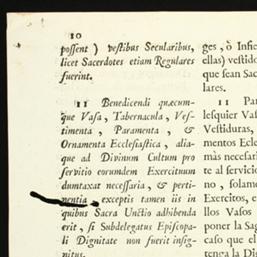 10
possent ) vestibus Secularibus,
licet Sacerdotes etiam Regulares
fuerint.
11 Benedicendi quæcum-
que Vasa, Tabernacula, Ves-
timenta, Paramenta, &
Ornamenta Ecclesiastica, alia-
que ad Divinum Cultum pro
servitio eorumdem Exercituum
dumtaxat necessaria, & perti-
nentia, exceptis tamen iis in
quibus Sacra Unctio adhibenda
erit, si Subdelegatus Episcopa-
li Dignitate non fuerit insig-
nitus.
ges, ò Infie
ellas) vestido
que sean Sac
lares.
11 Par
lesquier Vas
Vestiduras,
mentos Ecles
màs necesari
te al servicio
no, solame
Exercitos, e
llos Vasos
poner la Sag
caso que el
tenga la Dig